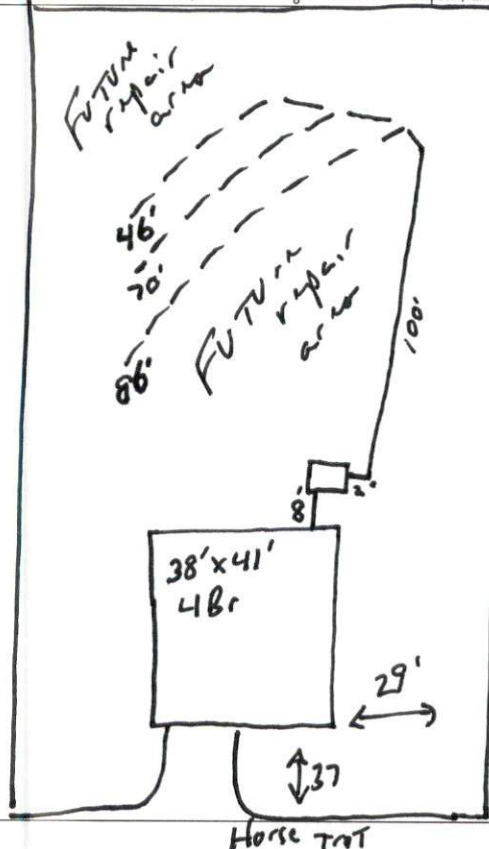 FUTURE
repair
area
46'
70'
86'
FUTURE
repair
area
100'
2'
8'
38' x 41'
4 Br
29'
37
Horse Trot